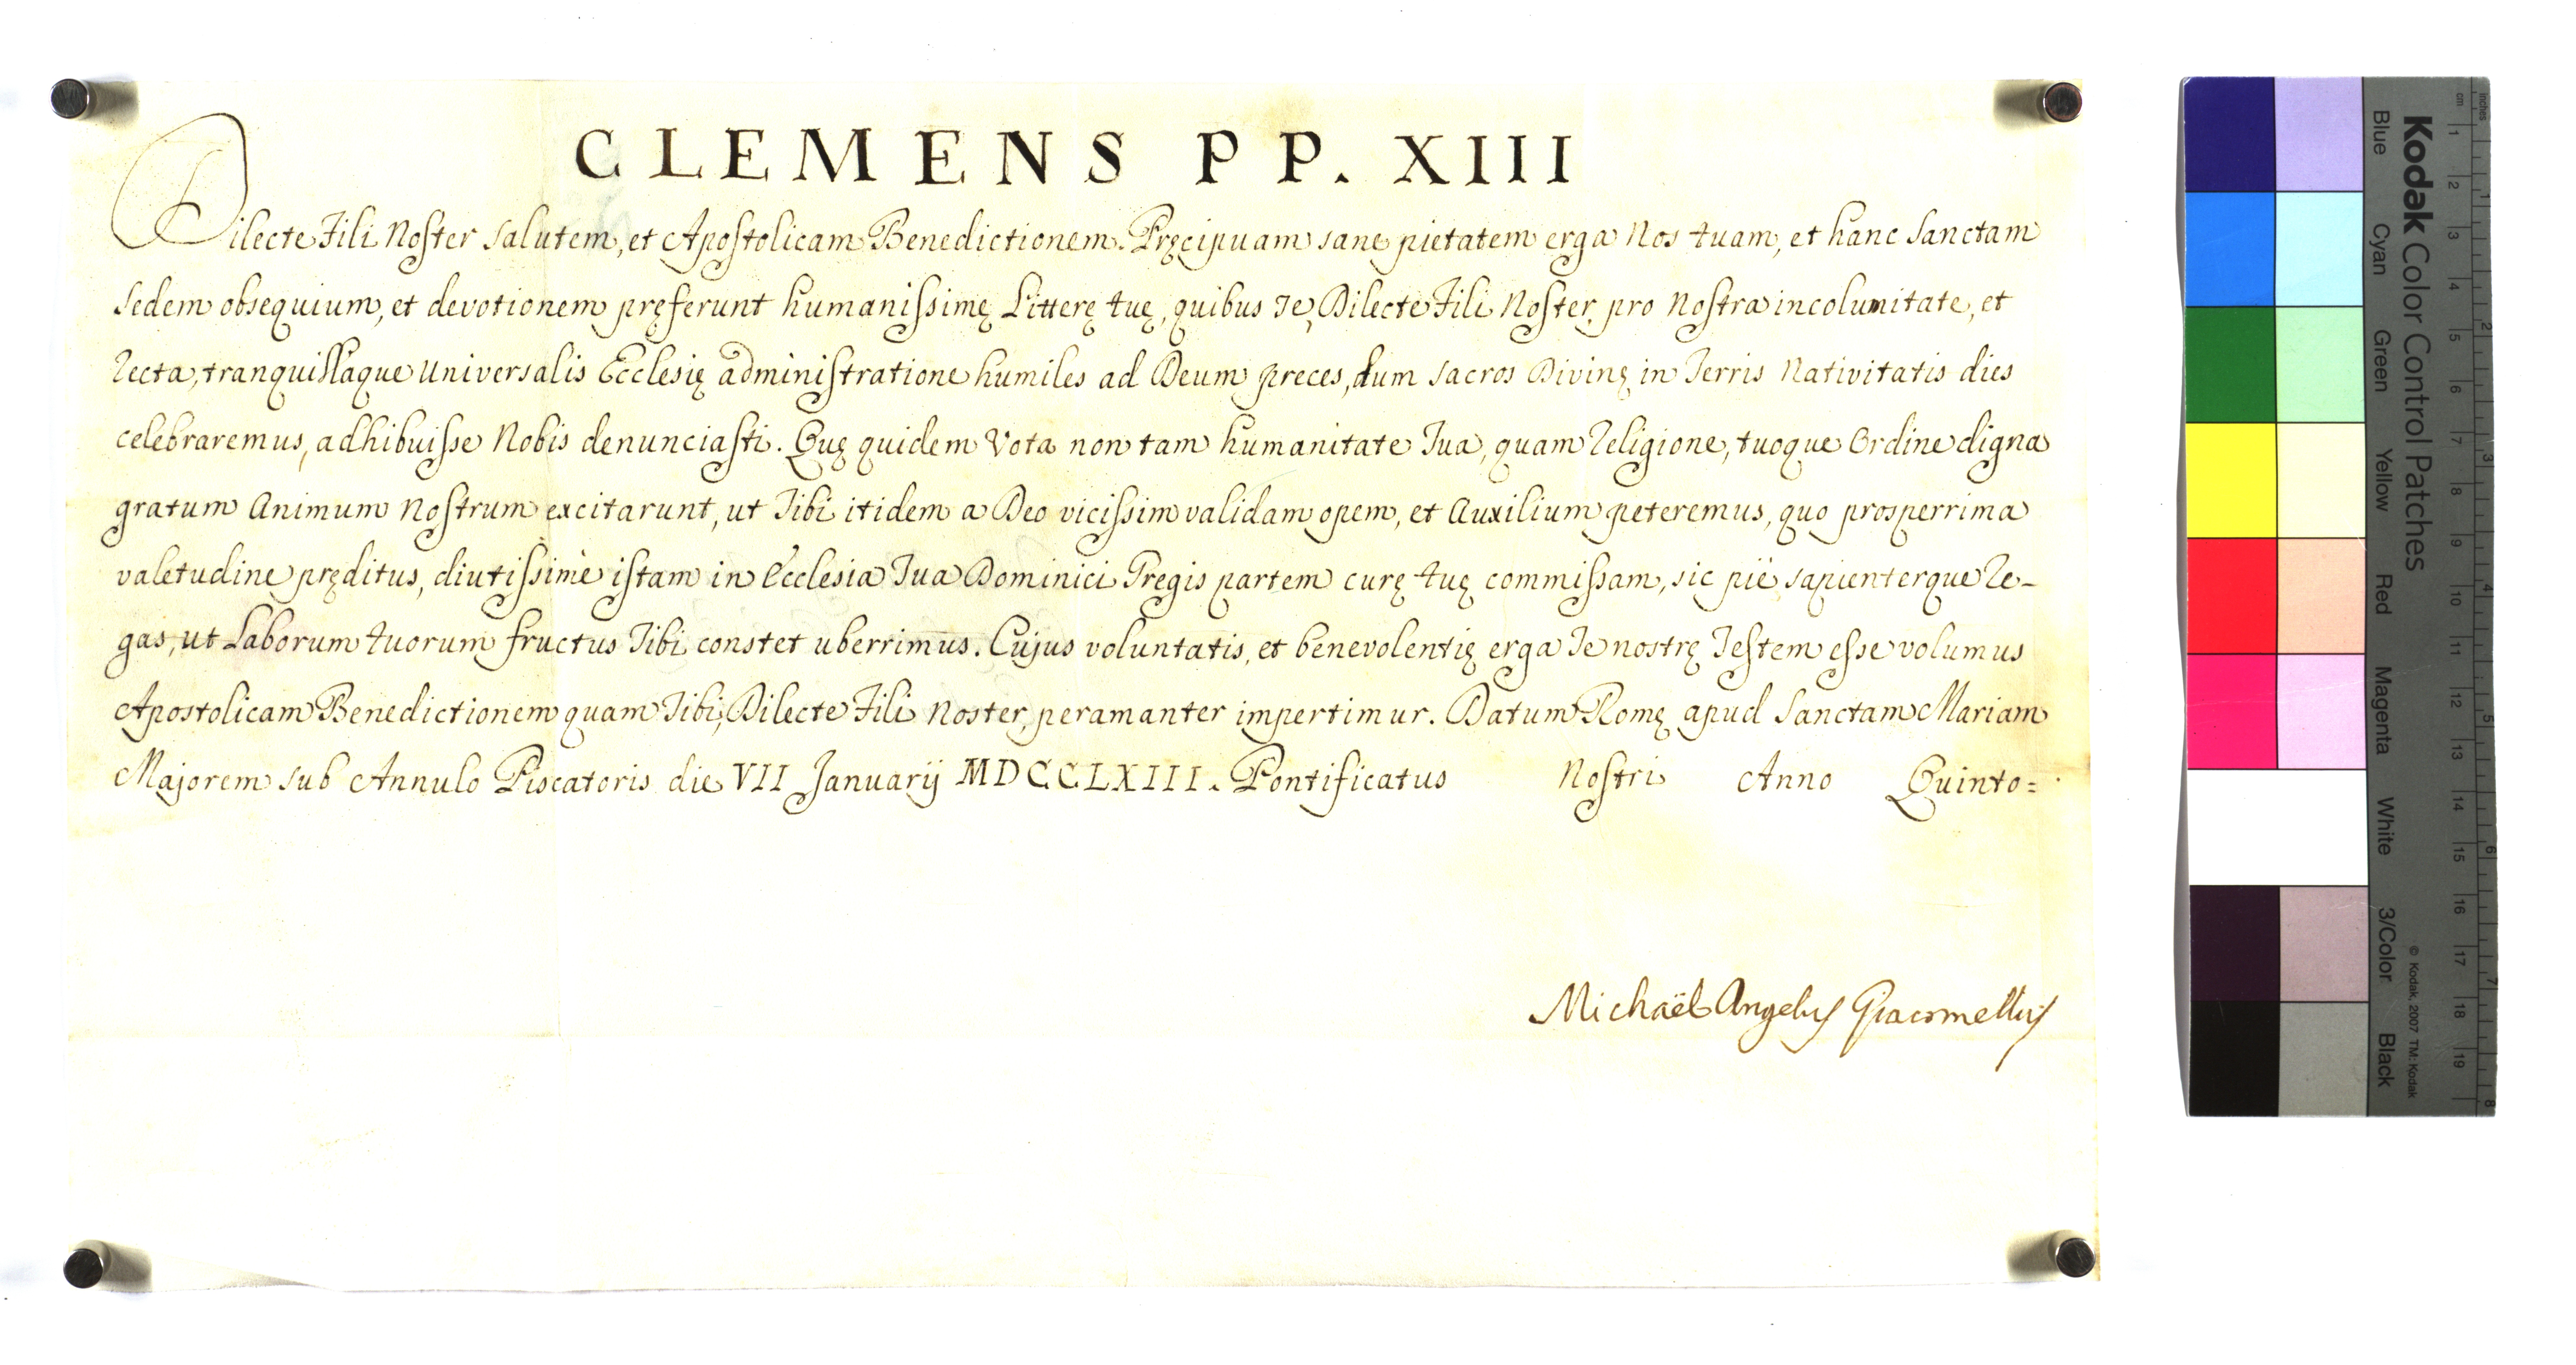 CLEMENS PP. XIII
Dilecte Fili Noster salutem, et Apostolicam Benedictionem. Pręcipuam sane pietatem erga Nos tuam, et hanc Sanctam
Sedem obsequium, et devotionem pręferunt humanissimę Litterę tuę, quibus Te, Dilecte Fili Noster, pro Nostra incolumitate, et
recta, tranquillaque Universalis Ecclesię administratione humiles ad Deum preces, dum sacros Divinę in Terris Nativitatis dies
celebraremus, adhibuisse Nobis denunciasti. Quę quidem Vota non tam humanitate Tua, quam Religione, tuoque Ordine digna
gratum Animum Nostrum excitarunt, ut Tibi itidem a Deo vicissim validam opem, et Auxilium peteremus, quo prosperrima
valetudine pręditus, diutissimè istam in Ecclesia Tua Dominici Gregis partem curę tuę commissam, sic piè sapienterque Re-
gas, ut Laborum tuorum fructus Tibi constet uberrimus. Cujus voluntatis, et benevolentię erga Te nostrę Testem esse volumus
Apostolicam Benedictionem quam Tibi, Dilecte Fili Noster, peramanter impertimur. Datum Romę apud Sanctam Mariam
Majorem sub Annulo Piscatoris die VII Januarij MDCCLXIII. Pontificatus Nostri Anno Quinto=
Michaël Angelus Giacomellus
Kodak Color Control Patches
Blue Cyan Green Yellow Red Magenta White 3/Color Black
© Kodak, 2007 TM: Kodak
cm 1 2 3 4 5 6 7 8 9 10 11 12 13 14 15 16 17 18 19
inches 1 2 3 4 5 6 7 8